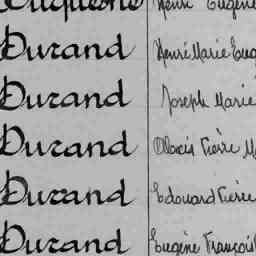 Duquesne Henri Eugène
Durand Henri Marie Eug
Durand Joseph Marie
Durand Alexis Pierre M
Durand Edouard Pierre
Durand Eugène François